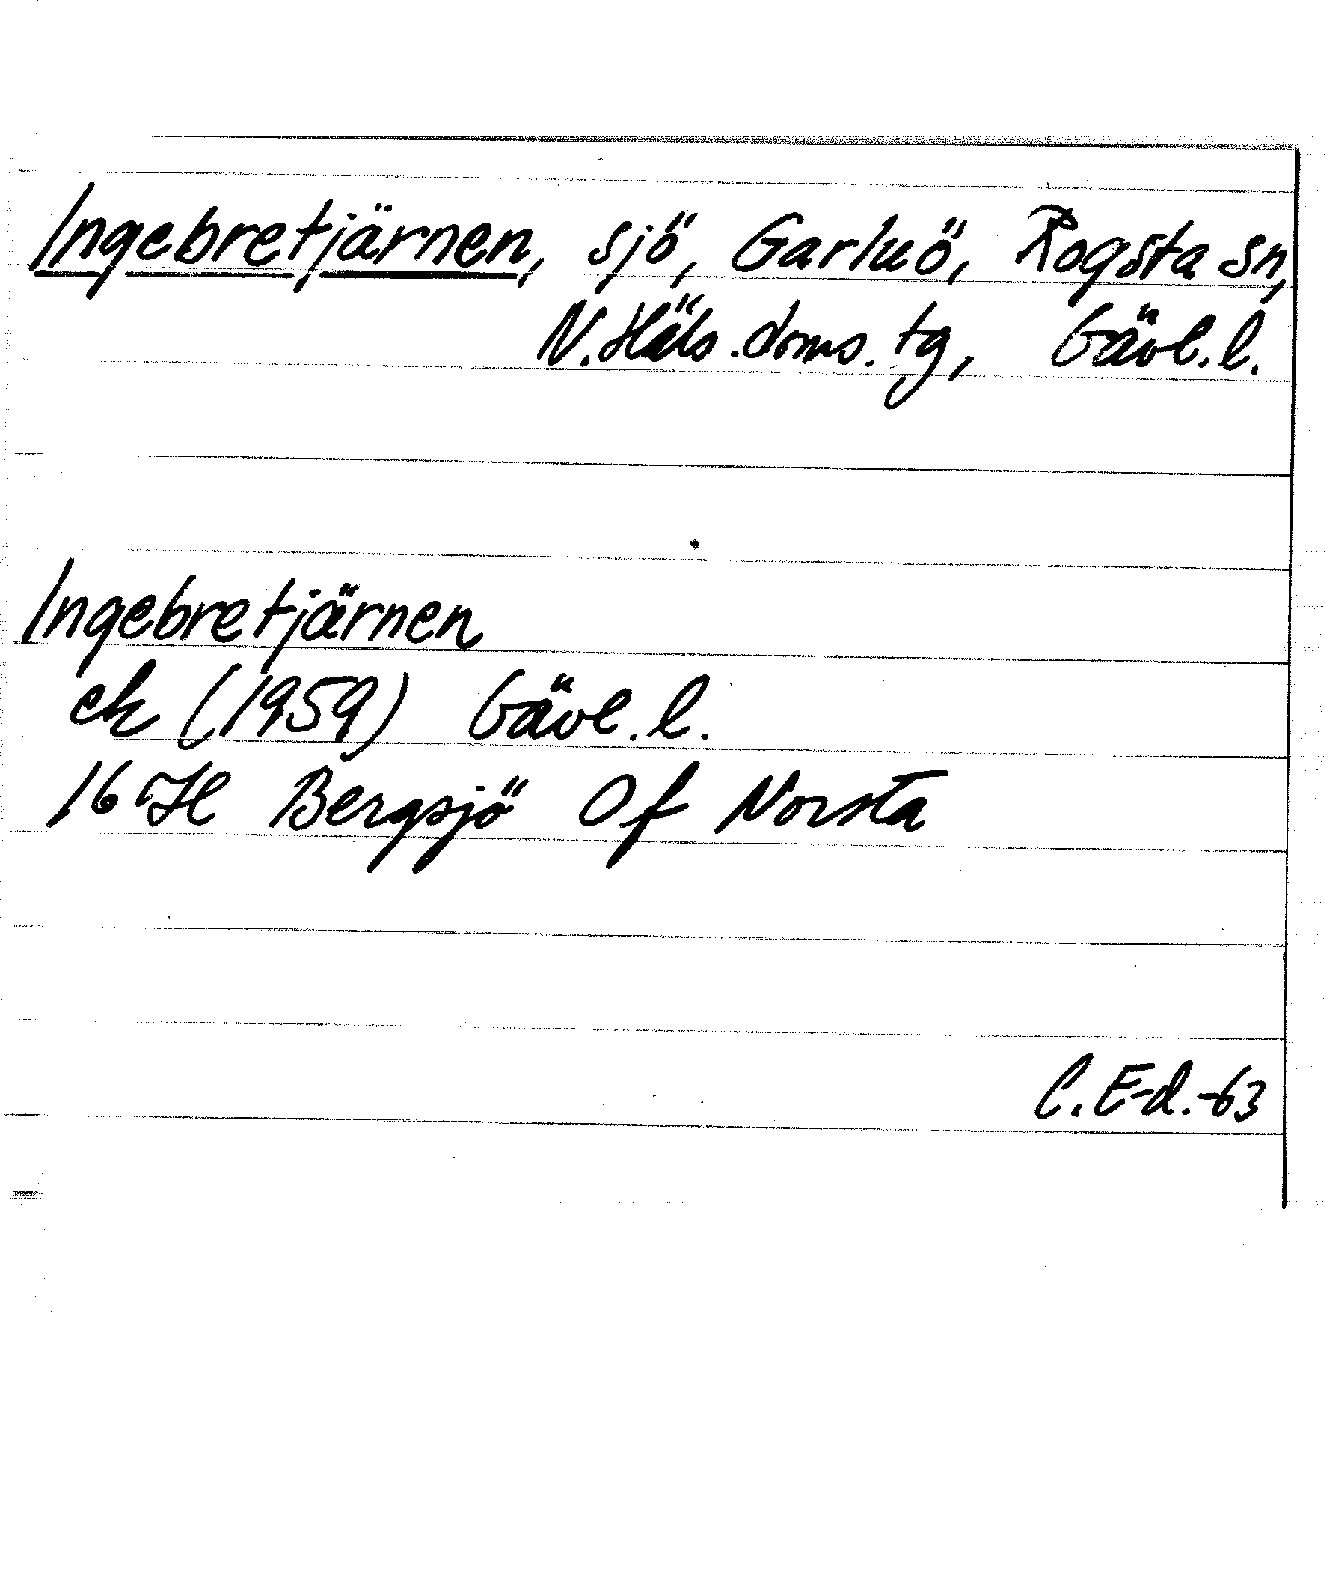 Ingebretjärnen, sjö, Garluö, Rogsta sn,
N. Häls. doms. tg, Gävl. l.
Ingebretjärnen
ek (1959) Gävl. l.
16 H Bergsjö Of Norsta
C. E-d. -63